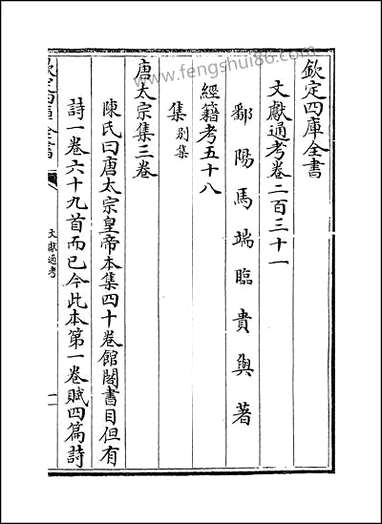 欽定四庫全書
文獻通考卷二百三十一
鄱陽馬端臨貴與著
經籍考五十八
集別集
唐太宗集三卷
陳氏曰唐太宗皇帝本集四十卷館閣書目但有
詩一卷六十九首而已今此本第一卷賦四篇詩
文獻通考
一
www.fengshui86.com